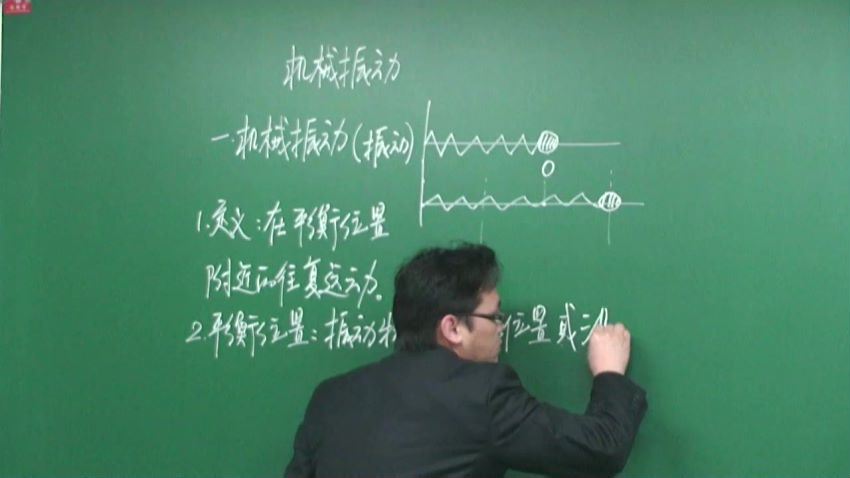 机械振动
一.机械振动(振动)
O
1.定义:在平衡位置
附近的往复运动。
2.平衡位置:振动 位置或